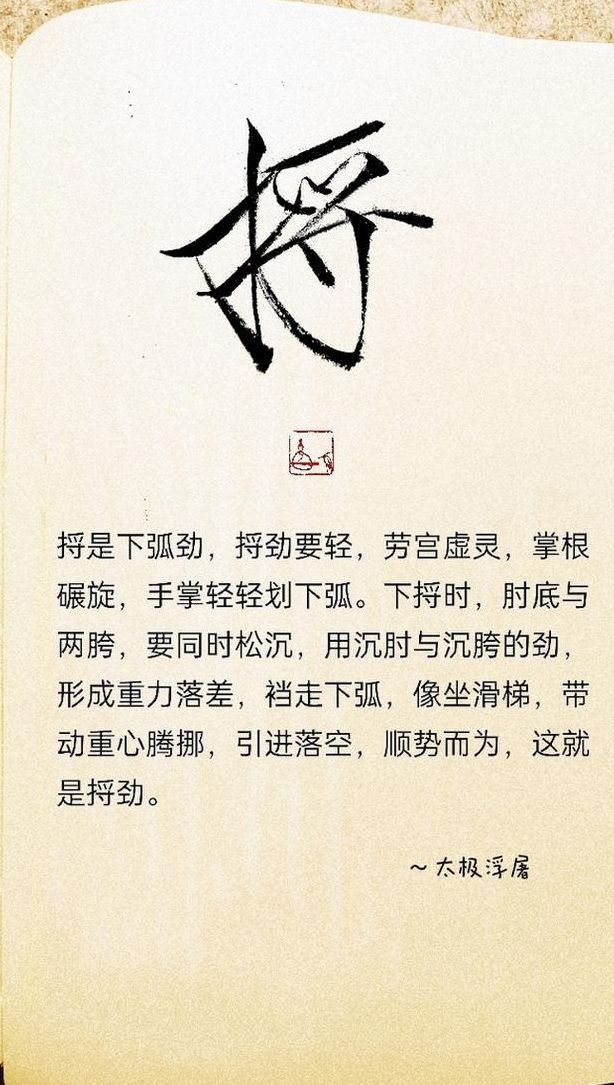 捋
捋是下弧劲，捋劲要轻，劳宫虚灵，掌根
碾旋，手掌轻轻划下弧。下捋时，肘底与
两胯，要同时松沉，用沉肘与沉胯的劲，
形成重力落差，裆走下弧，像坐滑梯，带
动重心腾挪，引进落空，顺势而为，这就
是捋劲。
～太极浮屠